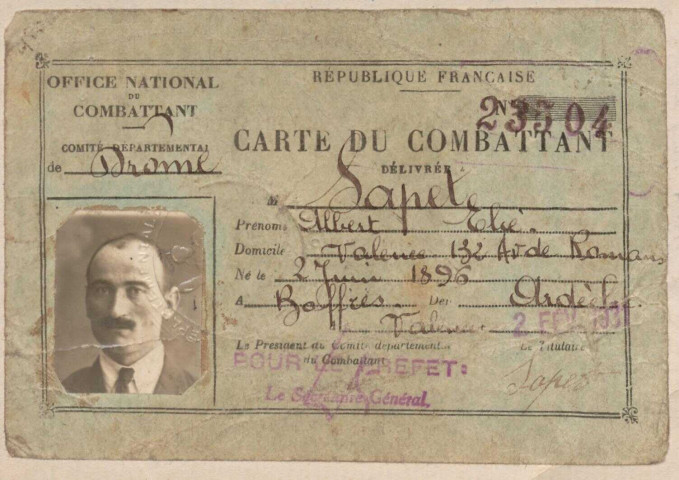 OFFICE NATIONAL
DU
COMBATTANT
COMITÉ DÉPARTEMENTAL
de Drome
RÉPUBLIQUE FRANÇAISE
N° 23504
CARTE DU COMBATTANT
DÉLIVRÉE
à M Sapet
Prénoms Albert Elié.
Domicile Valence 132 Av de Romans
Né le 2 Juin 1896
A Boffres. Dep Ardèche
A Valence 2 FEV 1931
Le Président du Comité départemental
du Combattant
Le Titulaire
POUR LE PREFET:
Le Secrétaire Général,
Sapet